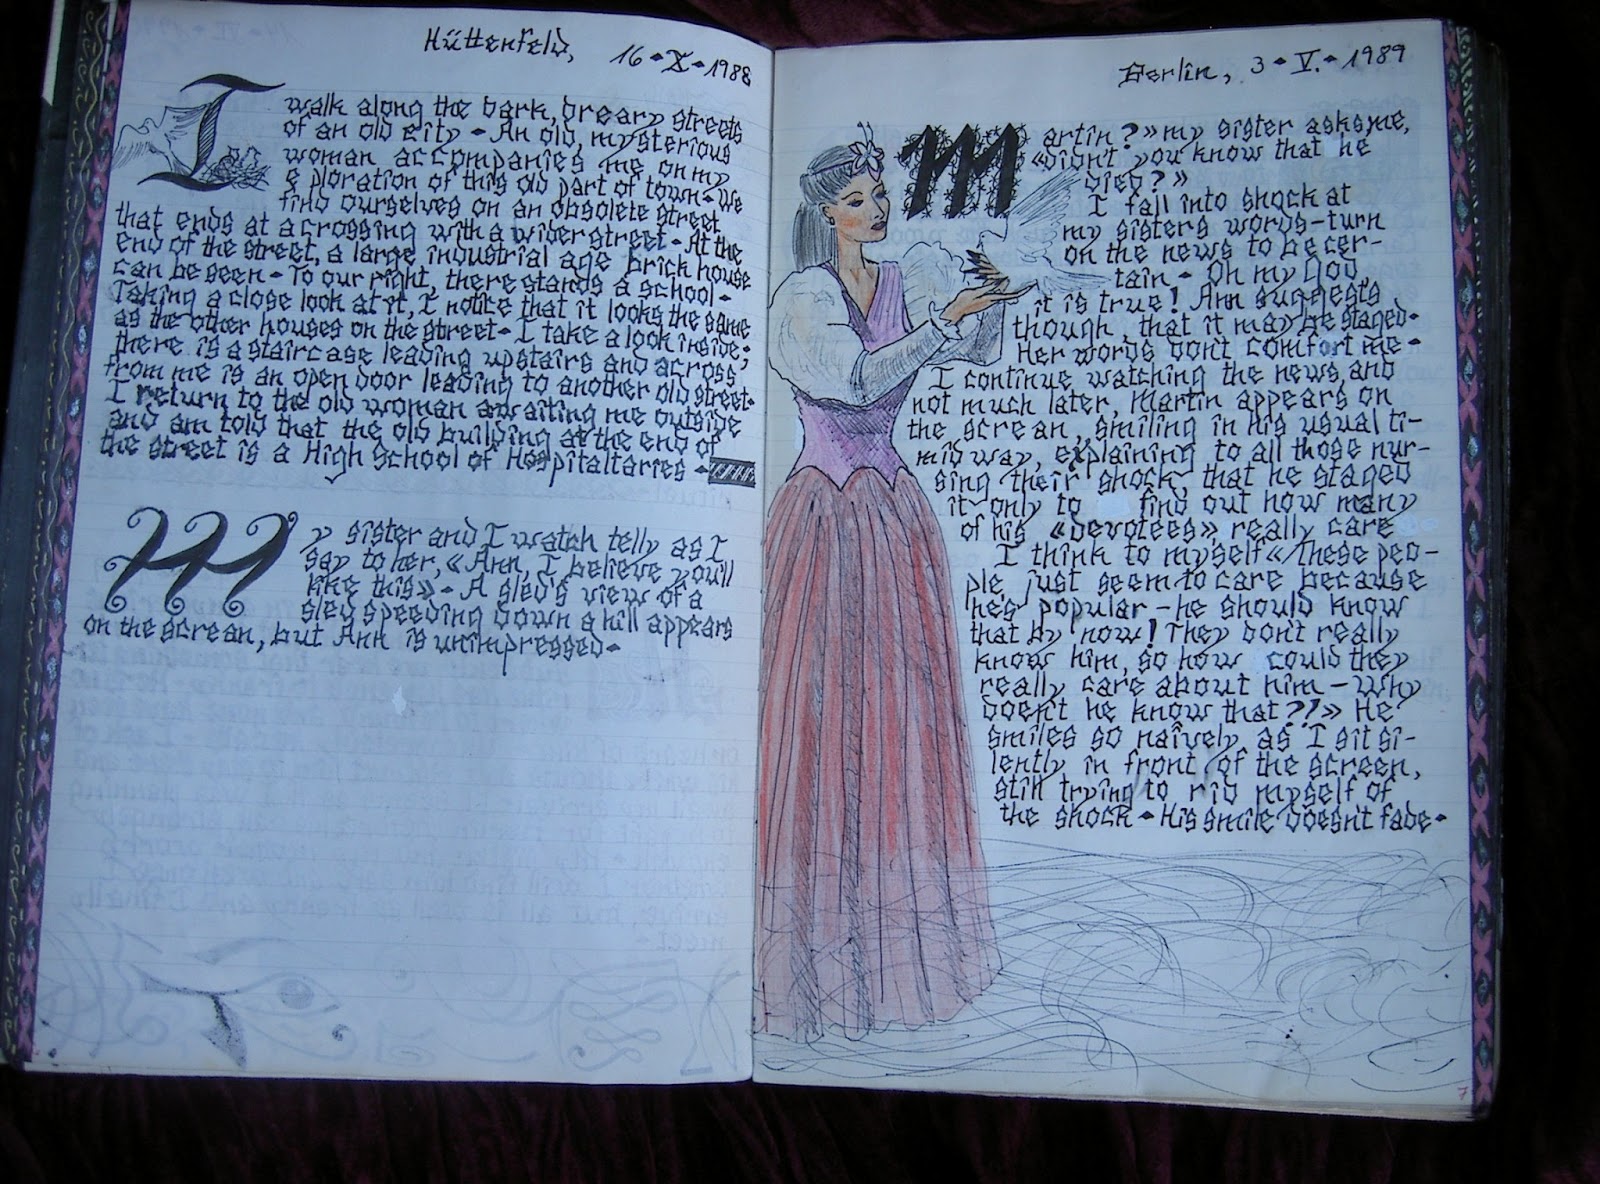 Hüttenfeld, 16 • X • 1988
I walk along the dark, dreary streets
of an old city • An old, mysterious
woman accompanies me on my
e ploration of this old part of town • We
find ourselves on an obsolete street
that ends at a crossing with a wider street • At the
end of the street, a large industrial age brick house
can be seen • To our right, there stands a school •
Taking a close look at it, I notice that it looks the same
as the other houses on the street • I take a look inside;
there is a staircase leading upstairs and across
from me is an open door leading to another old street •
I return to the old woman awaiting me outside
and am told that the old building at the end of
the street is a High School of Hospitaltaries •
My sister and I watch telly as I
say to her, «Ann, I believe you'll
like this» • A sled's view of a
sled speeding down a hill appears
on the screan, but Ann is unimpressed •
Berlin, 3 • V. • 1989
Martin?» my sister asks me,
«Didn't you know that he
died?»
I fall into shock at
my sisters words – turn
on the news to be cer-
tain • Oh my God,
it is true! Ann suggests
though, that it may be staged •
Her words don't comfort me •
I continue watching the news, and
not much later, Martin appears on
the screan, smiling in his usual ti-
mid way, explaining to all those nur-
sing their shock that he staged
it – only to find out how many
of his «devotees» really care
I think to myself «These peo-
ple just seem to care because
hes popular – he should know
that by now! They don't really
know him, so how could they
really care about him – Why
doen't he know that?!» He
smiles so naîvely as I sit si-
lently in front of the screen,
still trying to rid myself of
the shock • His smile doesn't fade •
7